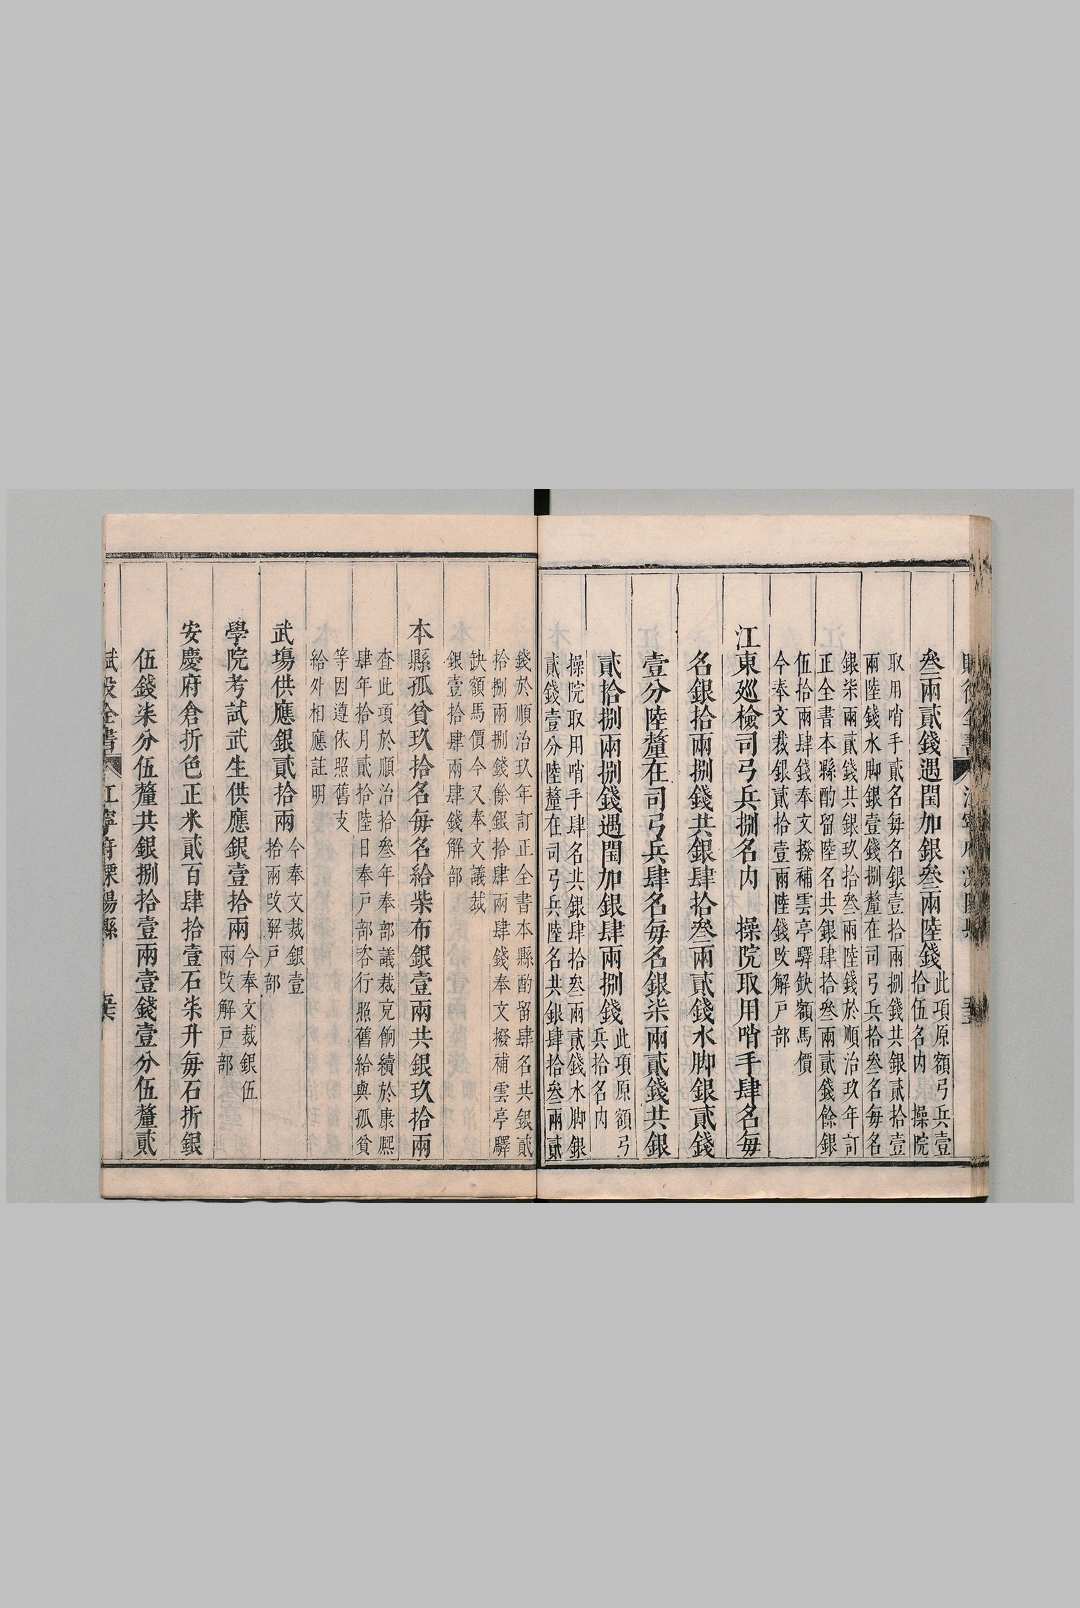 叁兩貳錢遇閏加銀叁兩陸錢
此項原額弓兵壹
拾伍名內 操院
取用哨手貳名每名銀壹拾兩捌錢共銀貳拾壹
兩陸錢水脚銀壹錢捌釐在司弓兵拾叁名每名
銀柒兩貳錢共銀玖拾叁兩陸錢於順治玖年訂
正全書本縣酌留陸名共銀肆拾叁兩貳錢餘銀
伍拾兩肆錢奉文撥補雲亭驛缺額馬價
今奉文裁銀貳拾壹兩陸錢改解戶部
江東廵檢司弓兵捌名內 操院取用哨手肆名每
名銀拾兩捌錢共銀肆拾叁兩貳錢水脚銀貳錢
壹分陸釐在司弓兵肆名每名銀柒兩貳錢共銀
貳拾捌兩捌錢遇閏加銀肆兩捌錢
此項原額弓
兵拾名內
操院取用哨手肆名共銀肆拾叁兩貳錢水脚銀
貳錢壹分陸釐在司弓兵陸名共銀肆拾叁兩貳
錢於順治玖年訂正全書本縣酌留肆名共銀貳
拾捌兩捌錢餘銀拾肆兩肆錢奉文撥補雲亭驛
缺額馬價今又奉文議裁
銀壹拾肆兩肆錢解部
本縣孤貧玖拾名每名給柴布銀壹兩共銀玖拾兩
查此項於順治拾叁年奉部議裁克餉續於康熙
肆年拾月貳拾陸日奉戶部咨行照舊給與孤貧
等因遵依照舊支
給外相應註明
武塲供應銀貳拾兩
今奉文裁銀壹
拾兩改解戶部
學院考試武生供應銀壹拾兩
今奉文裁銀伍
兩改解戶部
安慶府倉折色正米貳百肆拾壹石柒升每石折銀
伍錢柒分伍釐共銀捌拾壹兩壹錢壹分伍釐貳
賦役全書 江寧府溧陽縣